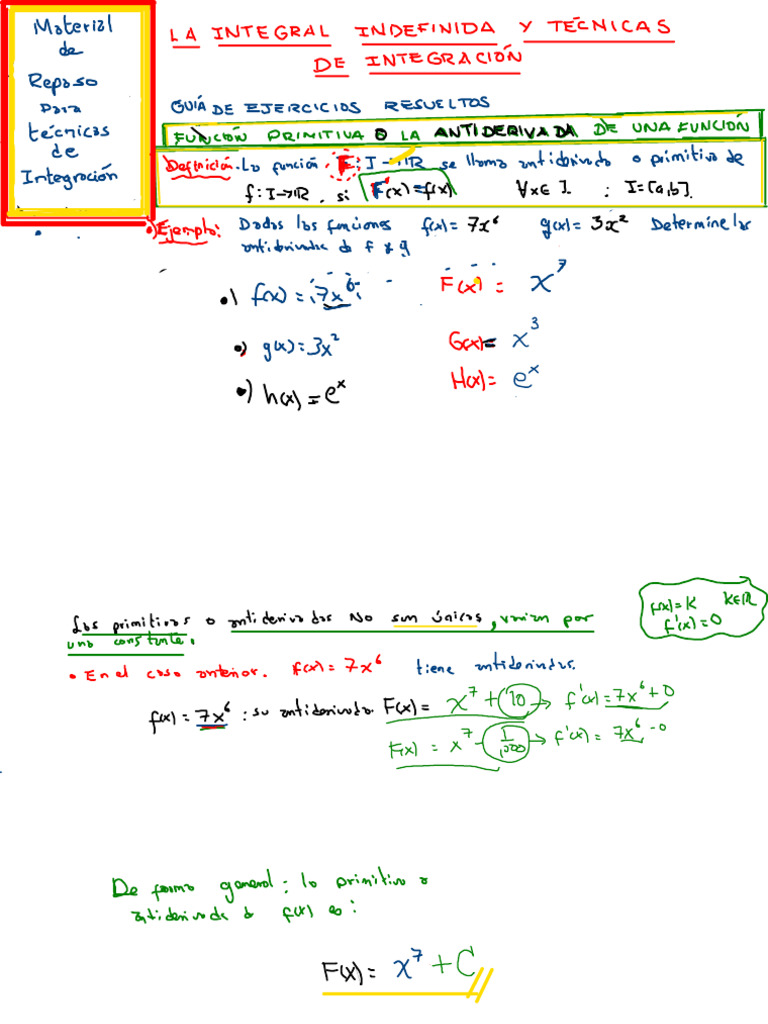 Material
de
Repaso
para
técnicas
de
Integración
LA INTEGRAL INDEFINIDA Y TÉCNICAS
DE INTEGRACIÓN
GUÍA DE EJERCICIOS RESUELTOS
FUNCIÓN PRIMITIVA O LA ANTIDERIVADA DE UNA FUNCIÓN
Definición. La función. F: I → IR se llama antiderivada o primitiva de
f: I → IR, si F'(x) = f(x) ∀x ∈ I. ; I = [a,b].
•) Ejemplo: Dadas las funciones f(x) = 7x⁶ g(x) = 3x² Determine las
antiderivadas de f y g
•) f(x) = 7x⁶ F(x) = x⁷
•) g(x) = 3x² G(x) = x³
•) h(x) = eˣ H(x) = eˣ
f(x) = K K∈IR
f'(x) = 0
Las primitivas o antiderivadas No son únicas, varían por
una constante.
• En el caso anterior. f(x) = 7x⁶ tiene antiderivadas.
f(x) = 7x⁶ : su antiderivada F(x) = x⁷ + 10 → f'(x) = 7x⁶ + 0
F(x) = x⁷ - 1/1,000 → f'(x) = 7x⁶ - 0
De forma general: la primitiva o
antiderivada de f(x) es:
F(x) = x⁷ + C